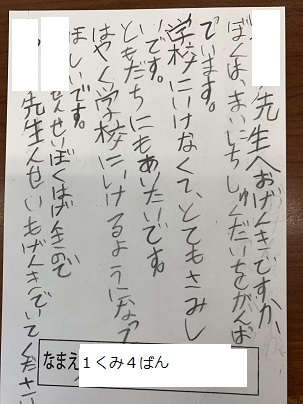 先生へおげんきですか、
ぼくは、まいにちしゅくだいをがんば
でいます。
学校にいけなくて、とてもさみし
いです。
ともだちにもあいたいです。
はやく学校にいけるようになって
ほしいです。
せんせいぼくはげんきので
先生んせいもげんきでいてください
なまえ 1くみ4ばん